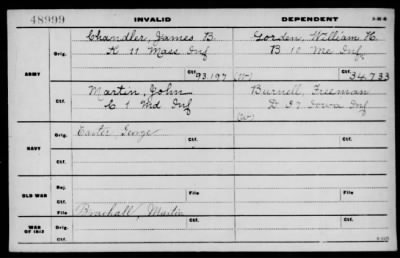 48999 INVALID DEPENDENT
Chandler, James B. Gorden, William H.
Orig. K 11 Mass Inf B 10 Me Inf
ARMY Ctf. 93197 (W) Ctf. 34,733
Martin, John Burnell, Freeman
Ctf. C 1 Md Inf D 37 Iowa Inf
(W)
Orig. Carter, George
NAVY
Ctf.
Rej.
OLD WAR File File
File Brachall, Martin
WAR OF 1812 Ctf. Ctf.
Ctf.